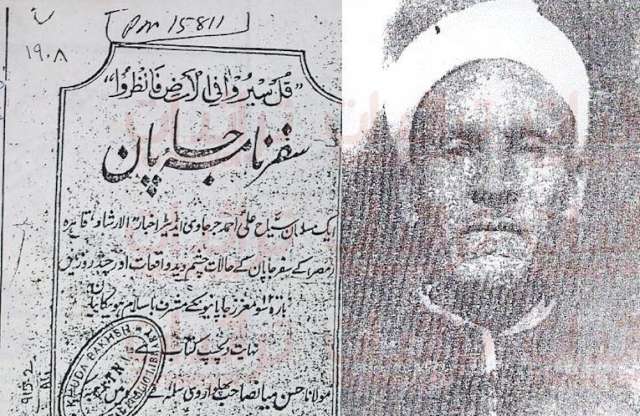 Pm 15811
۱۹۰۸
”قُل سِیرُوا فِی الارضِ فَانظُرُوا“
سفر نامہ جاپان
ایک مسلمان سیاح علی احمد جرجاوی ایڈیٹر اخبار الارشاد قاہرہ
مصر کے سفر جاپان کے حالات چشم دید واقعات اور چند روز میں
بارہ سو معزز جاپانیوں کے مشرف باسلام ہونیکا بیان
نہایت دلچسپ کتاب ہے
مولانا حسن میاں صاحب پھلواروی سلمہ نے
KHUDA BAKHSH
PATNA